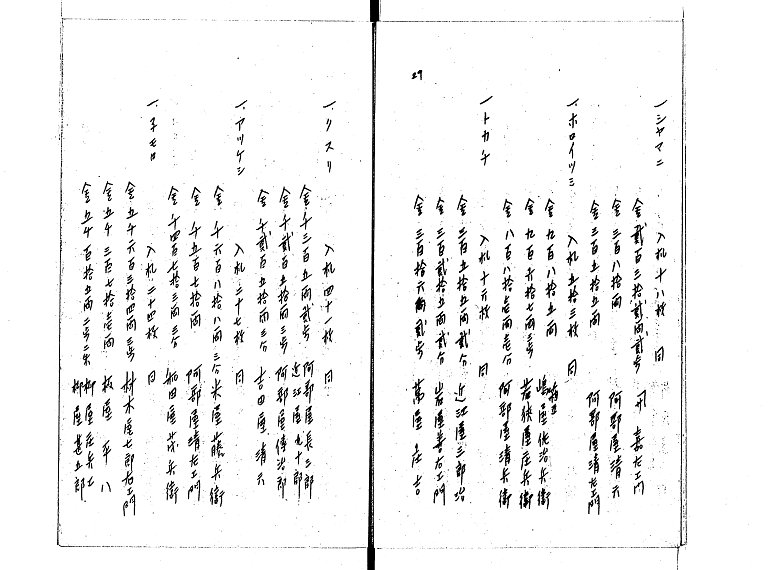 29
一シヤマニ 入札十八枚 同
金弐百三拾弐両弐歩 嘉左エ門
金三百八拾両 阿部屋清六
金三百五拾五両 阿部屋清左エ門
一ホロイツミ 入札五拾三枚 同
金九百八拾五両 嶋屋佐治兵衛
金九百六拾七両三歩 若狭屋庄兵衛
金八百八拾壱両壱分 阿部屋清兵衛
一トカチ 入札十六枚 同
金三百五拾五両弐分 近江屋三郎治
金三百弐拾五両弐分 岩屋善右エ門
金三百拾六両弐歩 萬屋庄吉
一クスリ 入札四十一枚 同
金千三百五両弐歩 阿部屋長三郎 近江屋九十郎
金千弐百五拾両三歩 阿部屋伝治郎
金千弐百五拾両三分 吉田屋清六
一アツケシ 入札三十七枚 同
金千六百八十八両三分 米屋藤兵衛
金千五百七拾両 阿部屋清左エ門
金千四百七拾三両三分 和田屋茂兵衛
一子モロ 入札二十四枚 同
金五千六百三拾四両三歩 材木屋七郎右エ門
金五千三百七拾壱両 板屋平八
金五千百拾五両二歩二朱 柳屋庄兵エ 柳屋甚五郎